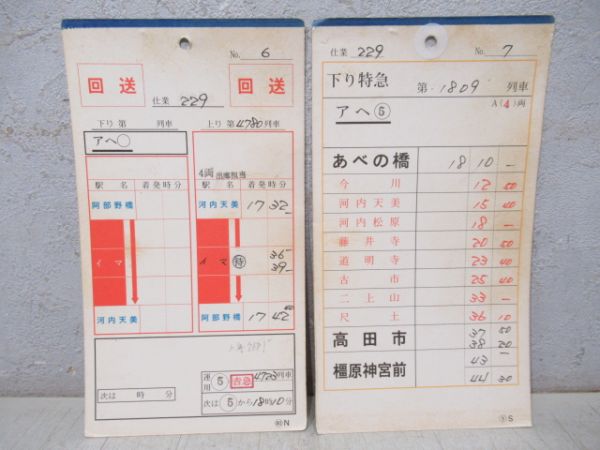 No. 6
回送 回送
仕業 229
下り 第 列車 上り 第4780列車
アヘ○
4両
駅名 着発時分 駅名 着発時分
阿部野橋 河内天美 17 32 —
イマ イマ 特 36
39 —
河内天美 阿部野橋 17 42
運用 5 吉急 4723列車
次は 時 分 次は 5 から18時10分
N
仕業 229 No. 7
下り特急 第 1809 列車
アヘ 5 A(4)両
あべの橋 18 10 —
今川 12 50
河内天美 15 40
河内松原 18 —
藤井寺 20 50
道明寺 23 40
古市 25 40
二上山 33 —
尺土 36 10
高田市 37 50
38 20
橿原神宮前 43 —
44 30
S